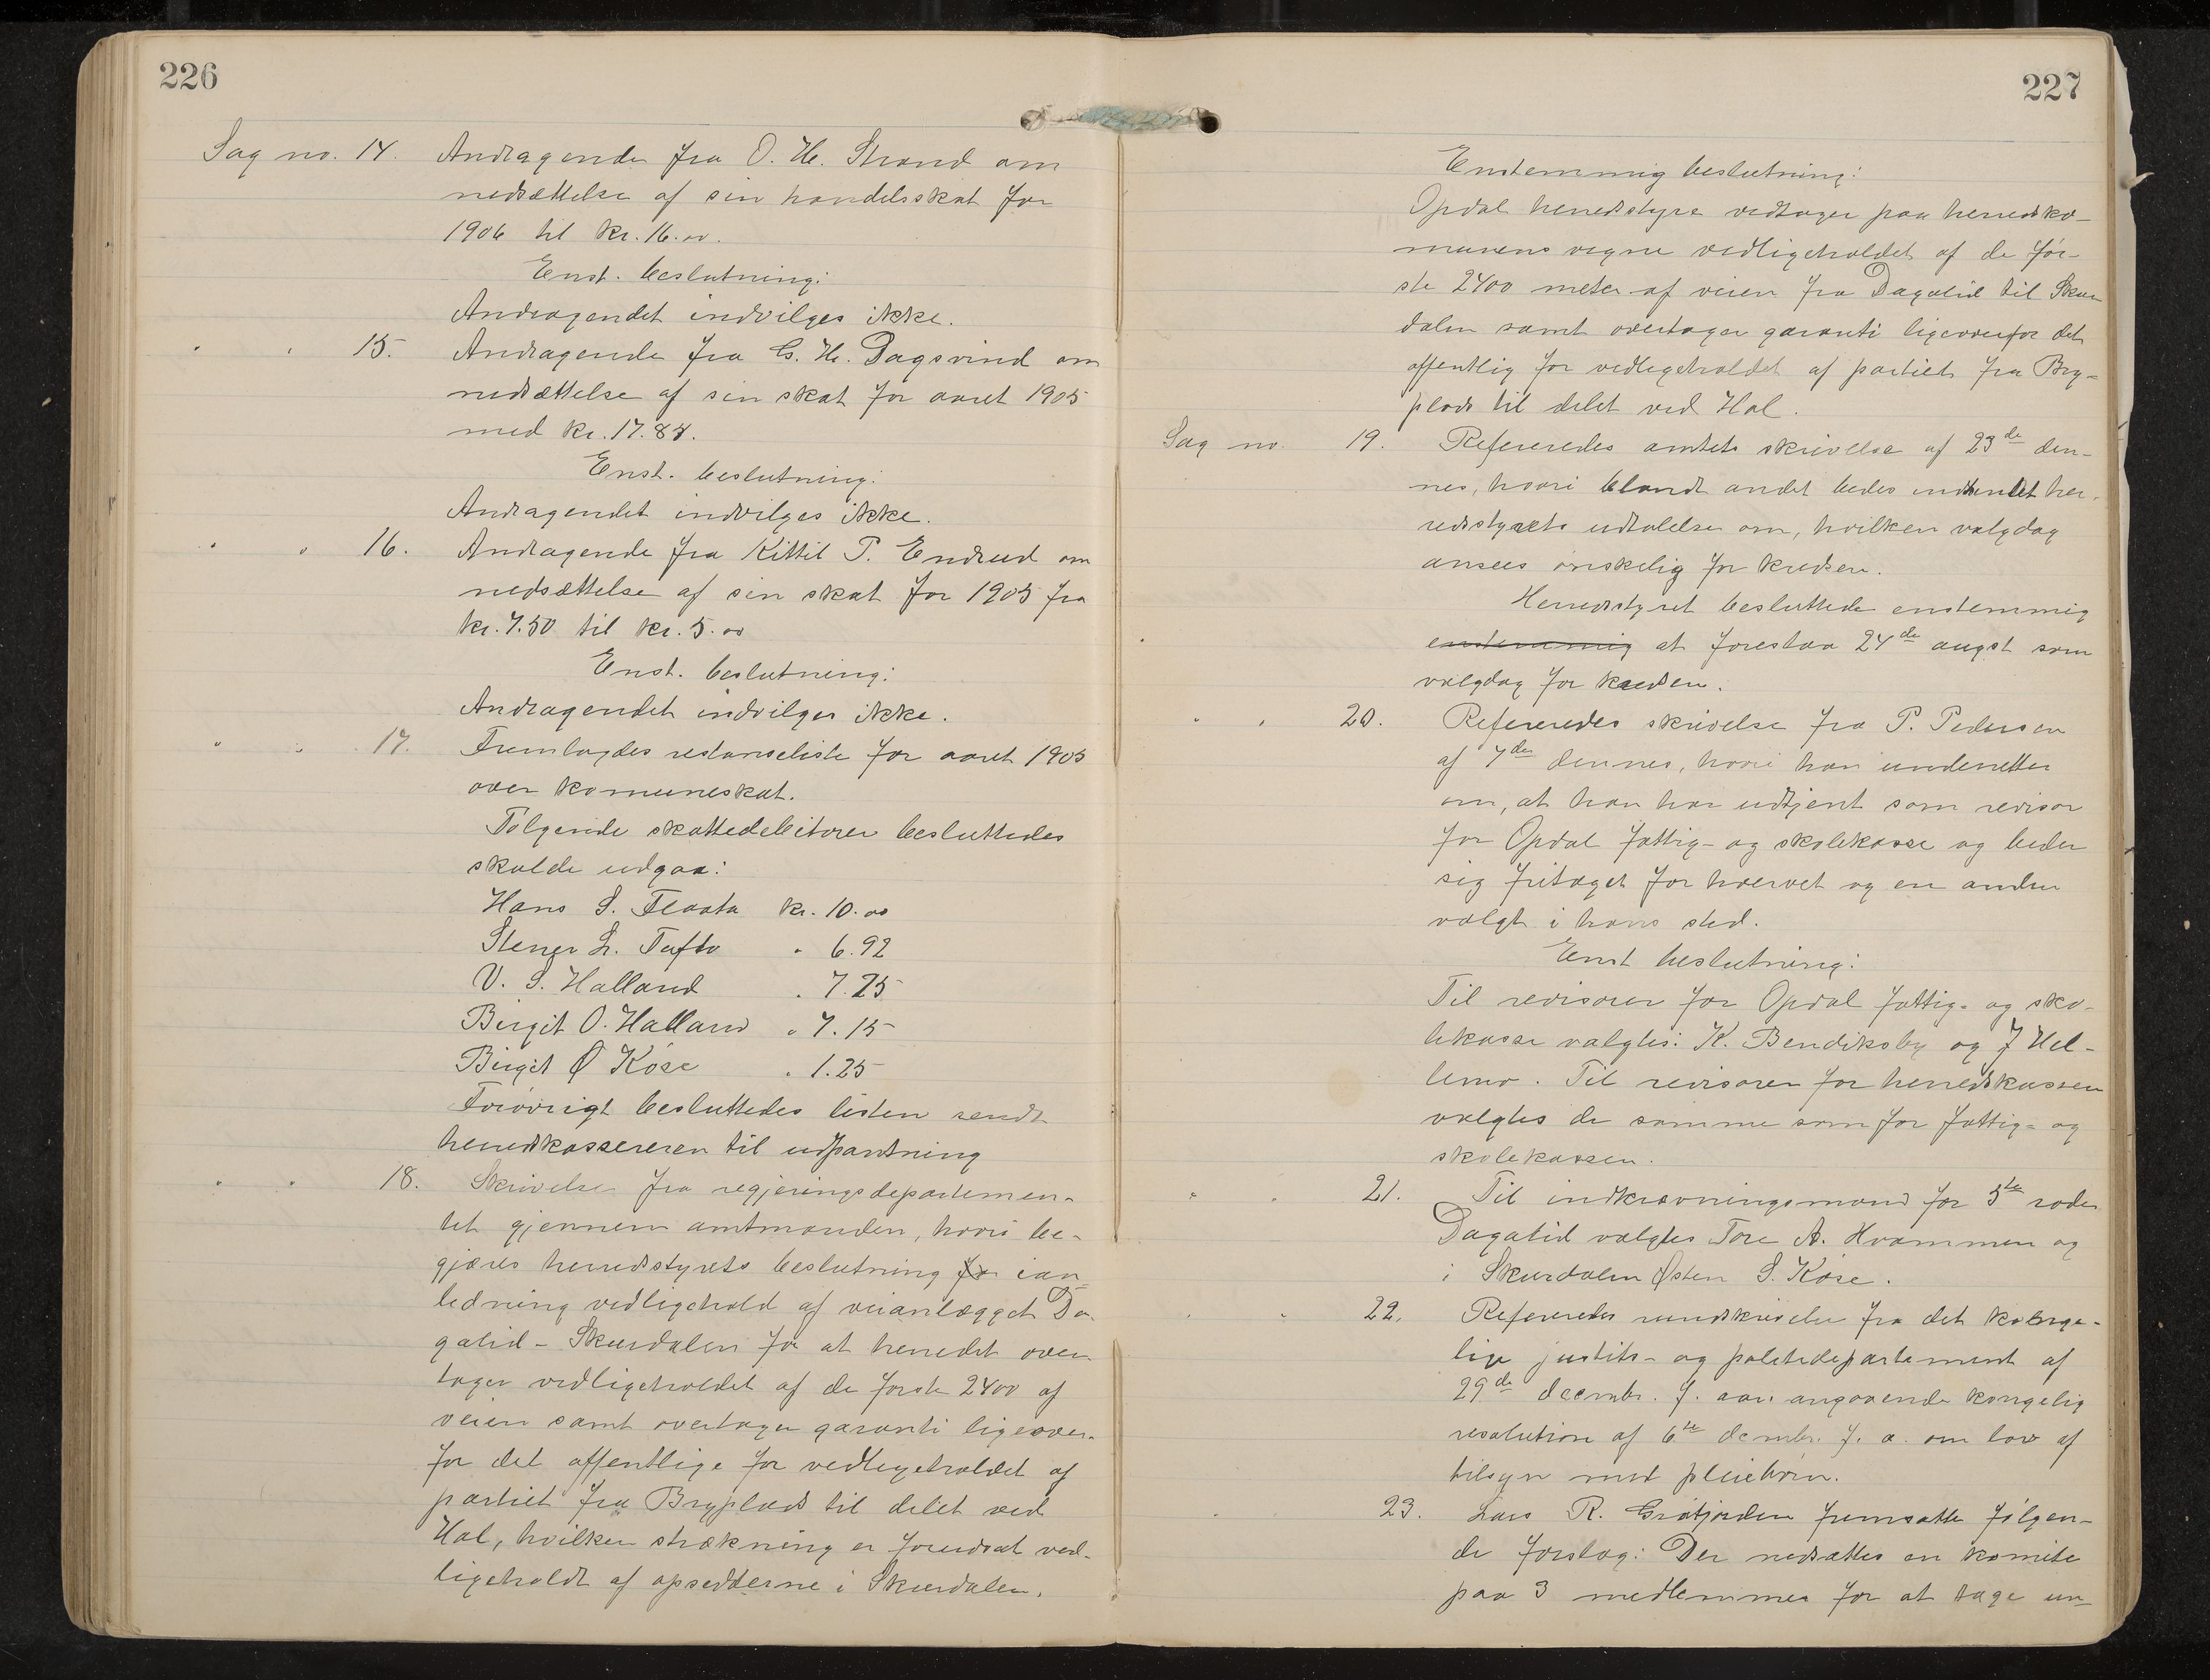 226
Sag no. 14. Andragende fra O. H. Strand om
nedsættelse af sin handelsskat for
1906 til kr. 16.00.
Enst. beslutning:
Andragendet indvilges ikke.
" " 15. Andragende fra G. H. Dagsvind om
nedsættelse af sin skat for aaret 1905
med kr. 17.84.
Enst. beslutning:
Andragendet indvilges ikke.
" " 16. Andragende fra Kittil P. Endrud om
nedsættelse af sin skat for 1905 fra
kr. 7.50 til kr. 5.00
Enst. beslutning:
Andragendet indvilges ikke.
" " 17. Fremlagdes restanseliste for aaret 1905
over komuneskat.
Følgende skattedebitorer besluttedes
skulde udgaa:
Hans S. Flaata kr. 10.00
Stener L. Tufto " 6.92
V. S. Halland " 7.25
Birgit O. Halland " 7.15
Birgit Ø Kose " 1.25
Forøvrigt besluttedes listen sendt
herredskassereren til udpantning
" " 18. Skrivelse fra regjeringsdepartemen-
tet gjennem amtmanden, hvori be-
gjæres herredstyrets beslutning for ian-
ledning vedligehold af veianlægget Da-
galid - Skurdalen for at herredet over-
tager vedligeholdet af de første 2400 af
veien samt overtager garanti ligeover-
for det offentlige for vedligeholdet af
partiet fra Bryplads til delet ved
Hol, hvilken strækning er forudsat ved-
ligeholdt af opsidderne i Skurdalen.
227
Enstemmig beslutning:
Opdal herredstyre vedtager paa herredsko-
munens vegne vedligeholdet af de før-
ste 2400 meter af veien fra Dagalid til Skur
dalen samt overtager garanti ligeoverfor det
offentlig for vedligeholdet af partiet fra Bry-
plads til delet ved Hol.
Sag no. 19. Refereredes amtets skrivelse af 23de den-
nes, hvori blandt andet bedes indhentet her-
redsstyrets udtalelse om, hvilken valgdag
ansees ønskelig for kredsen.
Herredstyret besluttede enstemmig
enstemmig at foreslaa 24de augst som
valgdag for kredsen.
" " 20. Refereredes skrivelse fra P. Pedersen
af 7de dennes, hvori han underretter
om, at han har udtjent som revisor
for Opdal fattig- og skolekasse og beder
sig fritaget for hvervet og en anden
valgt i hans sted.
Enst beslutning:
Til revisorer for Opdal fattig- og sko-
lekasse valgtes: K. Bendiksby og J Hel-
lemo. Til revisorer for herredskassen
valgtes de samme som for fattig- og
skolekassen.
" " 21. Til indkrævningsmand for 5te rode
Dagalid valgtes Tore A. Hvammen og
i Skurdalen Østen S. Kose.
" " 22. Refereredes rundskrivelse fra det konge-
lige justits- og politidepartement af
29de decembr. f. aar angaaende kongelig
resolution af 6te decmbr. f. a. om lov af
tilsyn med pleiebørn.
" 23. Lars R. Grøtjorden fremsatte følgen-
de forslag: Der nedsættes en komite
paa 3 medlemmer for at tage un-